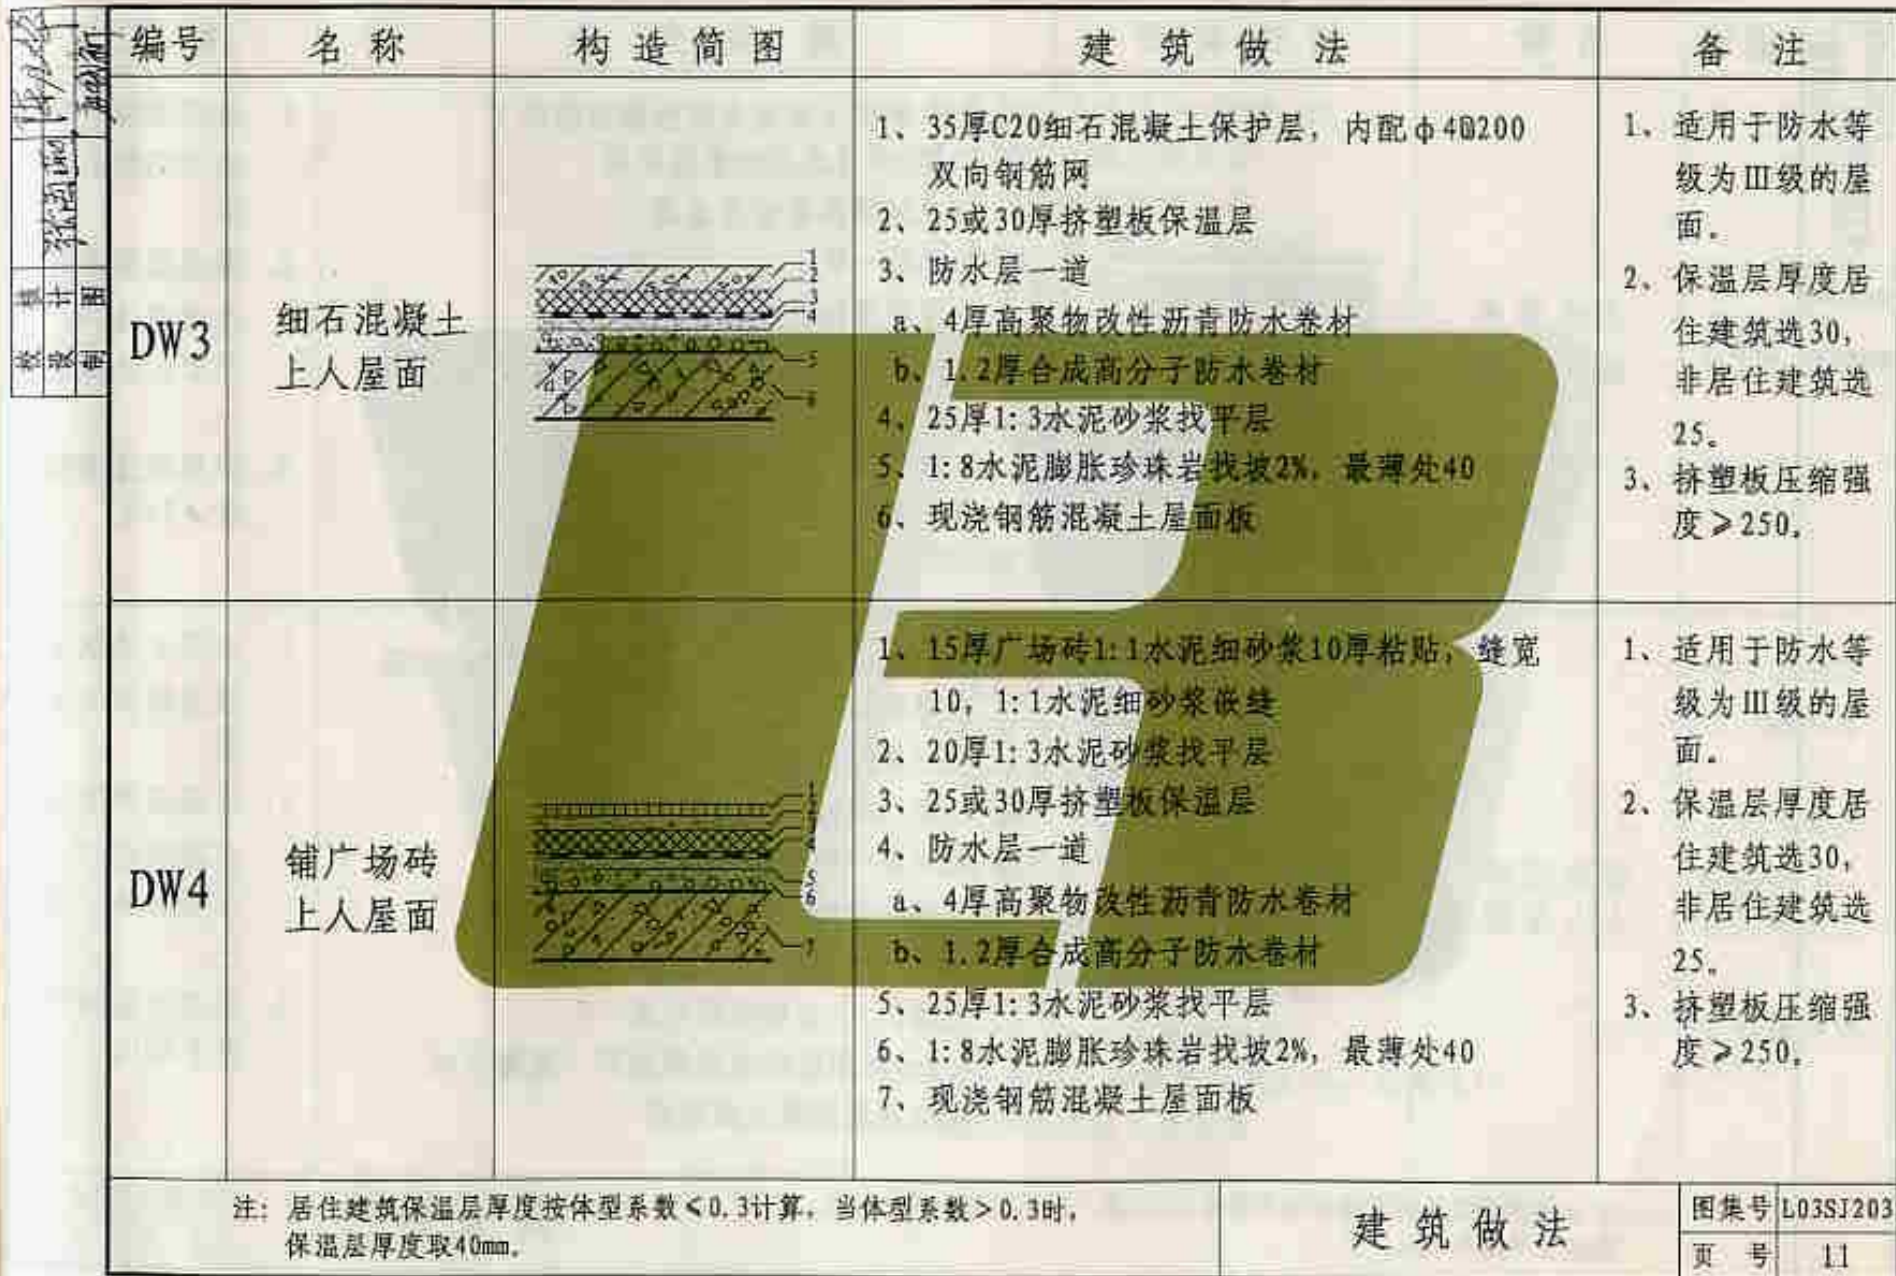 编号 名称 构造简图 建筑做法 备注
DW3
细石混凝土
上人屋面
1
2
3
4
5
6
1、35厚C20细石混凝土保护层，内配φ4@200
双向钢筋网
2、25或30厚挤塑板保温层
3、防水层一道
a、4厚高聚物改性沥青防水卷材
b、1.2厚合成高分子防水卷材
4、25厚1:3水泥砂浆找平层
5、1:8水泥膨胀珍珠岩找坡2%，最薄处40
6、现浇钢筋混凝土屋面板
1、适用于防水等
级为Ⅲ级的屋
面。
2、保温层厚度居
住建筑选30，
非居住建筑选
25。
3、挤塑板压缩强
度≥250。
DW4
铺广场砖
上人屋面
1
4
5
6
7
1、15厚广场砖1:1水泥细砂浆10厚粘贴，缝宽
10，1:1水泥细砂浆嵌缝
2、20厚1:3水泥砂浆找平层
3、25或30厚挤塑板保温层
4、防水层一道
a、4厚高聚物改性沥青防水卷材
b、1.2厚合成高分子防水卷材
5、25厚1:3水泥砂浆找平层
6、1:8水泥膨胀珍珠岩找坡2%，最薄处40
7、现浇钢筋混凝土屋面板
1、适用于防水等
级为Ⅲ级的屋
面。
2、保温层厚度居
住建筑选30，
非居住建筑选
25。
3、挤塑板压缩强
度≥250。
注：居住建筑保温层厚度按体型系数≤0.3计算，当体型系数>0.3时，
保温层厚度取40mm。
建筑做法
图集号 L03SJ203
页号 11
校核
设计
制图